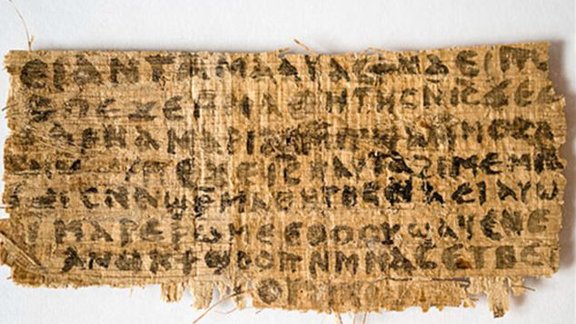 ⲉⲓ ⲁⲛ ⲧⲁⲙⲁⲁⲩ ⲁⲥϯ ⲛⲁⲉⲓ
ⲡⲉϫⲉ ⲙⲙⲁⲑⲏⲧⲏⲥ ⲛⲓⲥ ϫⲉ
ⲁⲣⲛⲁ ⲙⲁⲣⲓⲁⲙ ⲙⲡϣⲁ ⲙⲙⲟⲥ ⲁ
ⲡⲉϫⲉ ⲓⲥ ⲛⲁⲩ ⲧⲁϩⲓⲙⲉ ⲙⲛ
ⲥⲛⲁϣⲣⲙⲁⲑⲏⲧⲏⲥ ⲛⲁⲉⲓ ⲁⲩⲱ
ⲙⲁⲣⲉⲣⲱⲙⲉ ⲉⲑⲟⲟⲩ ϣⲁϥⲉ ⲛⲉ
ⲁⲛⲟⲕ ϯϣⲟⲟⲡ ⲛⲙⲙⲁⲥ ⲉⲧⲃⲉ